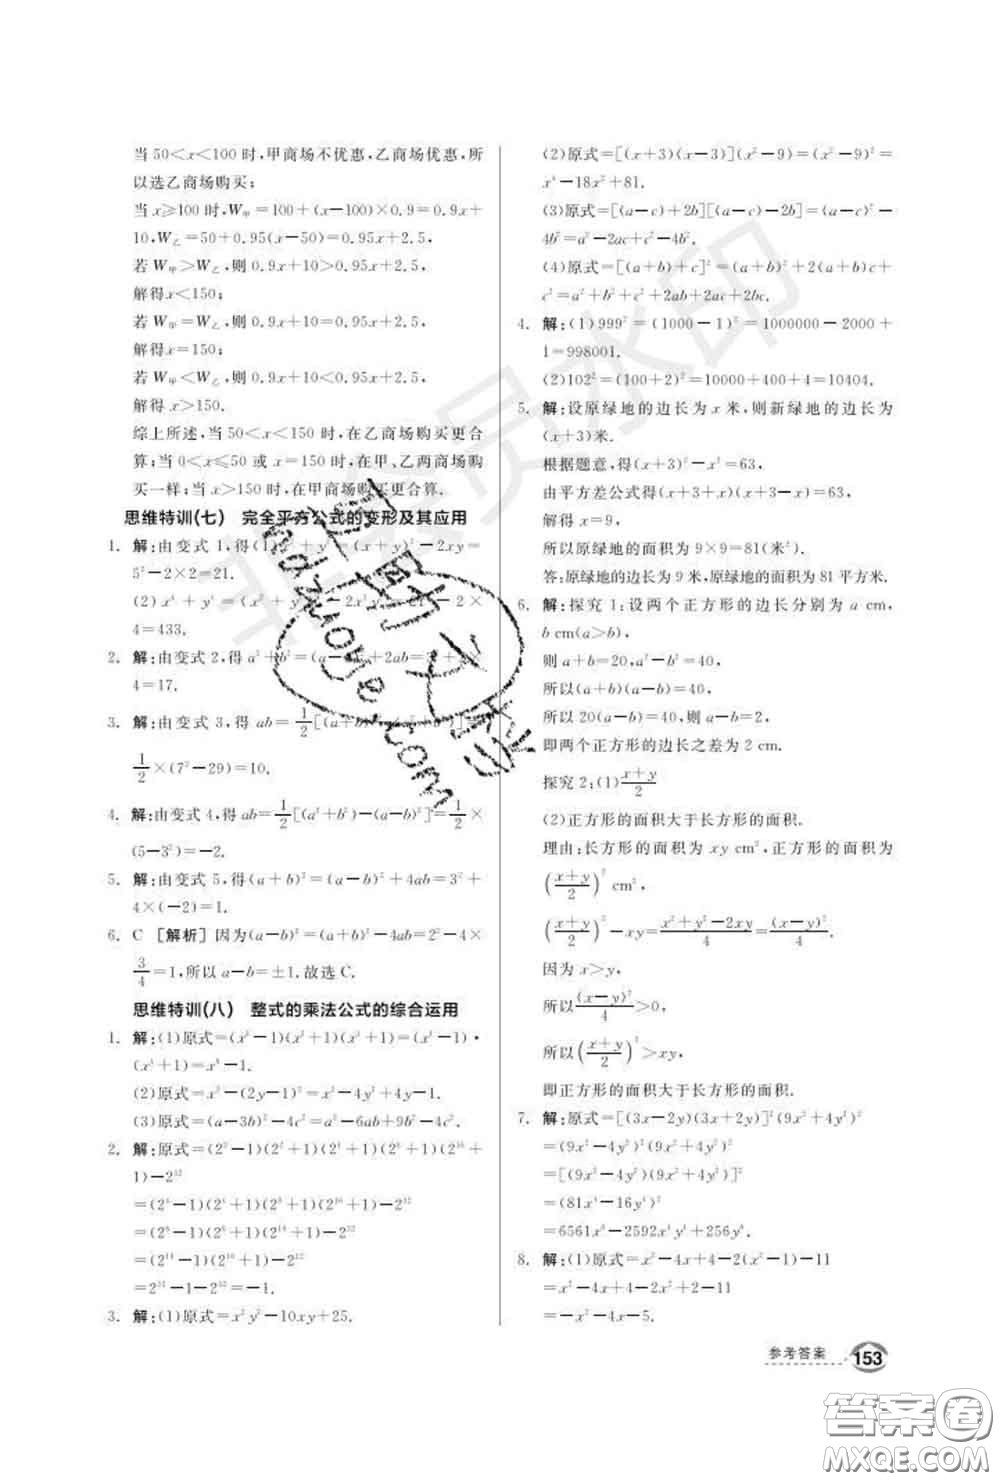 当 50<x<100 时,甲商场不优惠,乙商场优惠,所
以选乙商场购买;
当 x≥100 时,W甲=100+(x-100)×0.9=0.9x+
10,W乙=50+0.95(x-50)=0.95x+2.5,
若 W甲>W乙,则 0.9x+10>0.95x+2.5,
解得x<150;
若 W甲=W乙,则 0.9x+10=0.95x+2.5,
解得 x=150;
若 W甲<W乙,则 0.9x+10<0.95x+2.5,
解得 x>150.
综上所述,当 50<x<150 时,在乙商场购买更合
算;当 0<x≤50 或 x=150 时,在甲、乙两商场购
买一样;当 x>150 时,在甲商场购买更合算.
思维特训(七) 完全平方公式的变形及其应用
1. 解:由变式 1,得(1)x²+y²=(x+y)²-2xy=
5²-2×2=21.
(2)x⁴+y⁴=(x²+y²)²-2x²y²=21²-2×
4=433.
2. 解:由变式 2,得 a²+b²=(a-b)²+2ab=3²+2×
4=17.
3. 解:由变式 3,得 ab=1/2[(a+b)²-(a²+b²)]=
1/2×(7²-29)=10.
4. 解:由变式 4,得 ab=1/2[(a²+b²)-(a-b)²]=1/2×
(5-3²)=-2.
5. 解:由变式 5,得(a+b)²=(a-b)²+4ab=3²+
4×(-2)=1.
6. C [解析] 因为(a-b)²=(a+b)²-4ab=2²-4×
3/4=1,所以 a-b=±1.故选 C.
思维特训(八) 整式的乘法公式的综合运用
1. 解:(1)原式=(x²-1)(x²+1)(x⁴+1)=(x⁴-1)·
(x⁴+1)=x⁸-1.
(2)原式=x²-(2y-1)²=x²-4y²+4y-1.
(3)原式=(a-3b)²-4c²=a²-6ab+9b²-4c².
2. 解:原式=(2²-1)(2²+1)(2⁴+1)(2⁸+1)(2¹⁶+
1)-2³²
=(2⁴-1)(2⁴+1)(2⁸+1)(2¹⁶+1)-2³²
=(2⁸-1)(2⁸+1)(2¹⁶+1)-2³²
=(2¹⁶-1)(2¹⁶+1)-2³²
=2³²-1-2³²=-1.
3. 解:(1)原式=x²y²-10xy+25.
(2)原式=[(x+3)(x-3)](x²-9)=(x²-9)²=
x⁴-18x²+81.
(3)原式=[(a-c)+2b][(a-c)-2b]=(a-c)²-
4b²=a²-2ac+c²-4b².
(4)原式=[(a+b)+c]²=(a+b)²+2(a+b)c+
c²=a²+b²+c²+2ab+2ac+2bc.
4. 解:(1)999²=(1000-1)²=1000000-2000+
1=998001.
(2)102²=(100+2)²=10000+400+4=10404.
5. 解:设原绿地的边长为 x 米,则新绿地的边长为
(x+3)米.
根据题意,得(x+3)²-x²=63,
由平方差公式得(x+3+x)(x+3-x)=63,
解得 x=9,
所以原绿地的面积为 9×9=81(米²).
答:原绿地的边长为 9 米,原绿地的面积为 81 平方米.
6. 解:探究 1:设两个正方形的边长分别为 a cm,
b cm(a>b),
则 a+b=20,a²-b²=40,
所以(a+b)(a-b)=40,
所以 20(a-b)=40,则 a-b=2,
即两个正方形的边长之差为 2 cm.
探究 2:(1)(x+y)/2
(2)正方形的面积大于长方形的面积.
理由:长方形的面积为 xy cm²,正方形的面积为
((x+y)/2)² cm²,
((x+y)/2)²-xy=(x²+y²-2xy)/4=(x-y)²/4.
因为 x>y,
所以(x-y)²/4>0,
所以((x+y)/2)²>xy,
即正方形的面积大于长方形的面积.
7. 解:原式=[(3x-2y)(3x+2y)]²(9x²+4y²)²
=(9x²-4y²)²(9x²+4y²)²
=[(9x²-4y²)(9x²+4y²)]²
=(81x⁴-16y⁴)²
=6561x⁸-2592x⁴y⁴+256y⁸.
8. 解:(1)原式=x²-4x+4-2(x²-1)-11
=x²-4x+4-2x²+2-11
=-x²-4x-5.
参考答案 153
非会员水印
答案圈
MXQE.COM